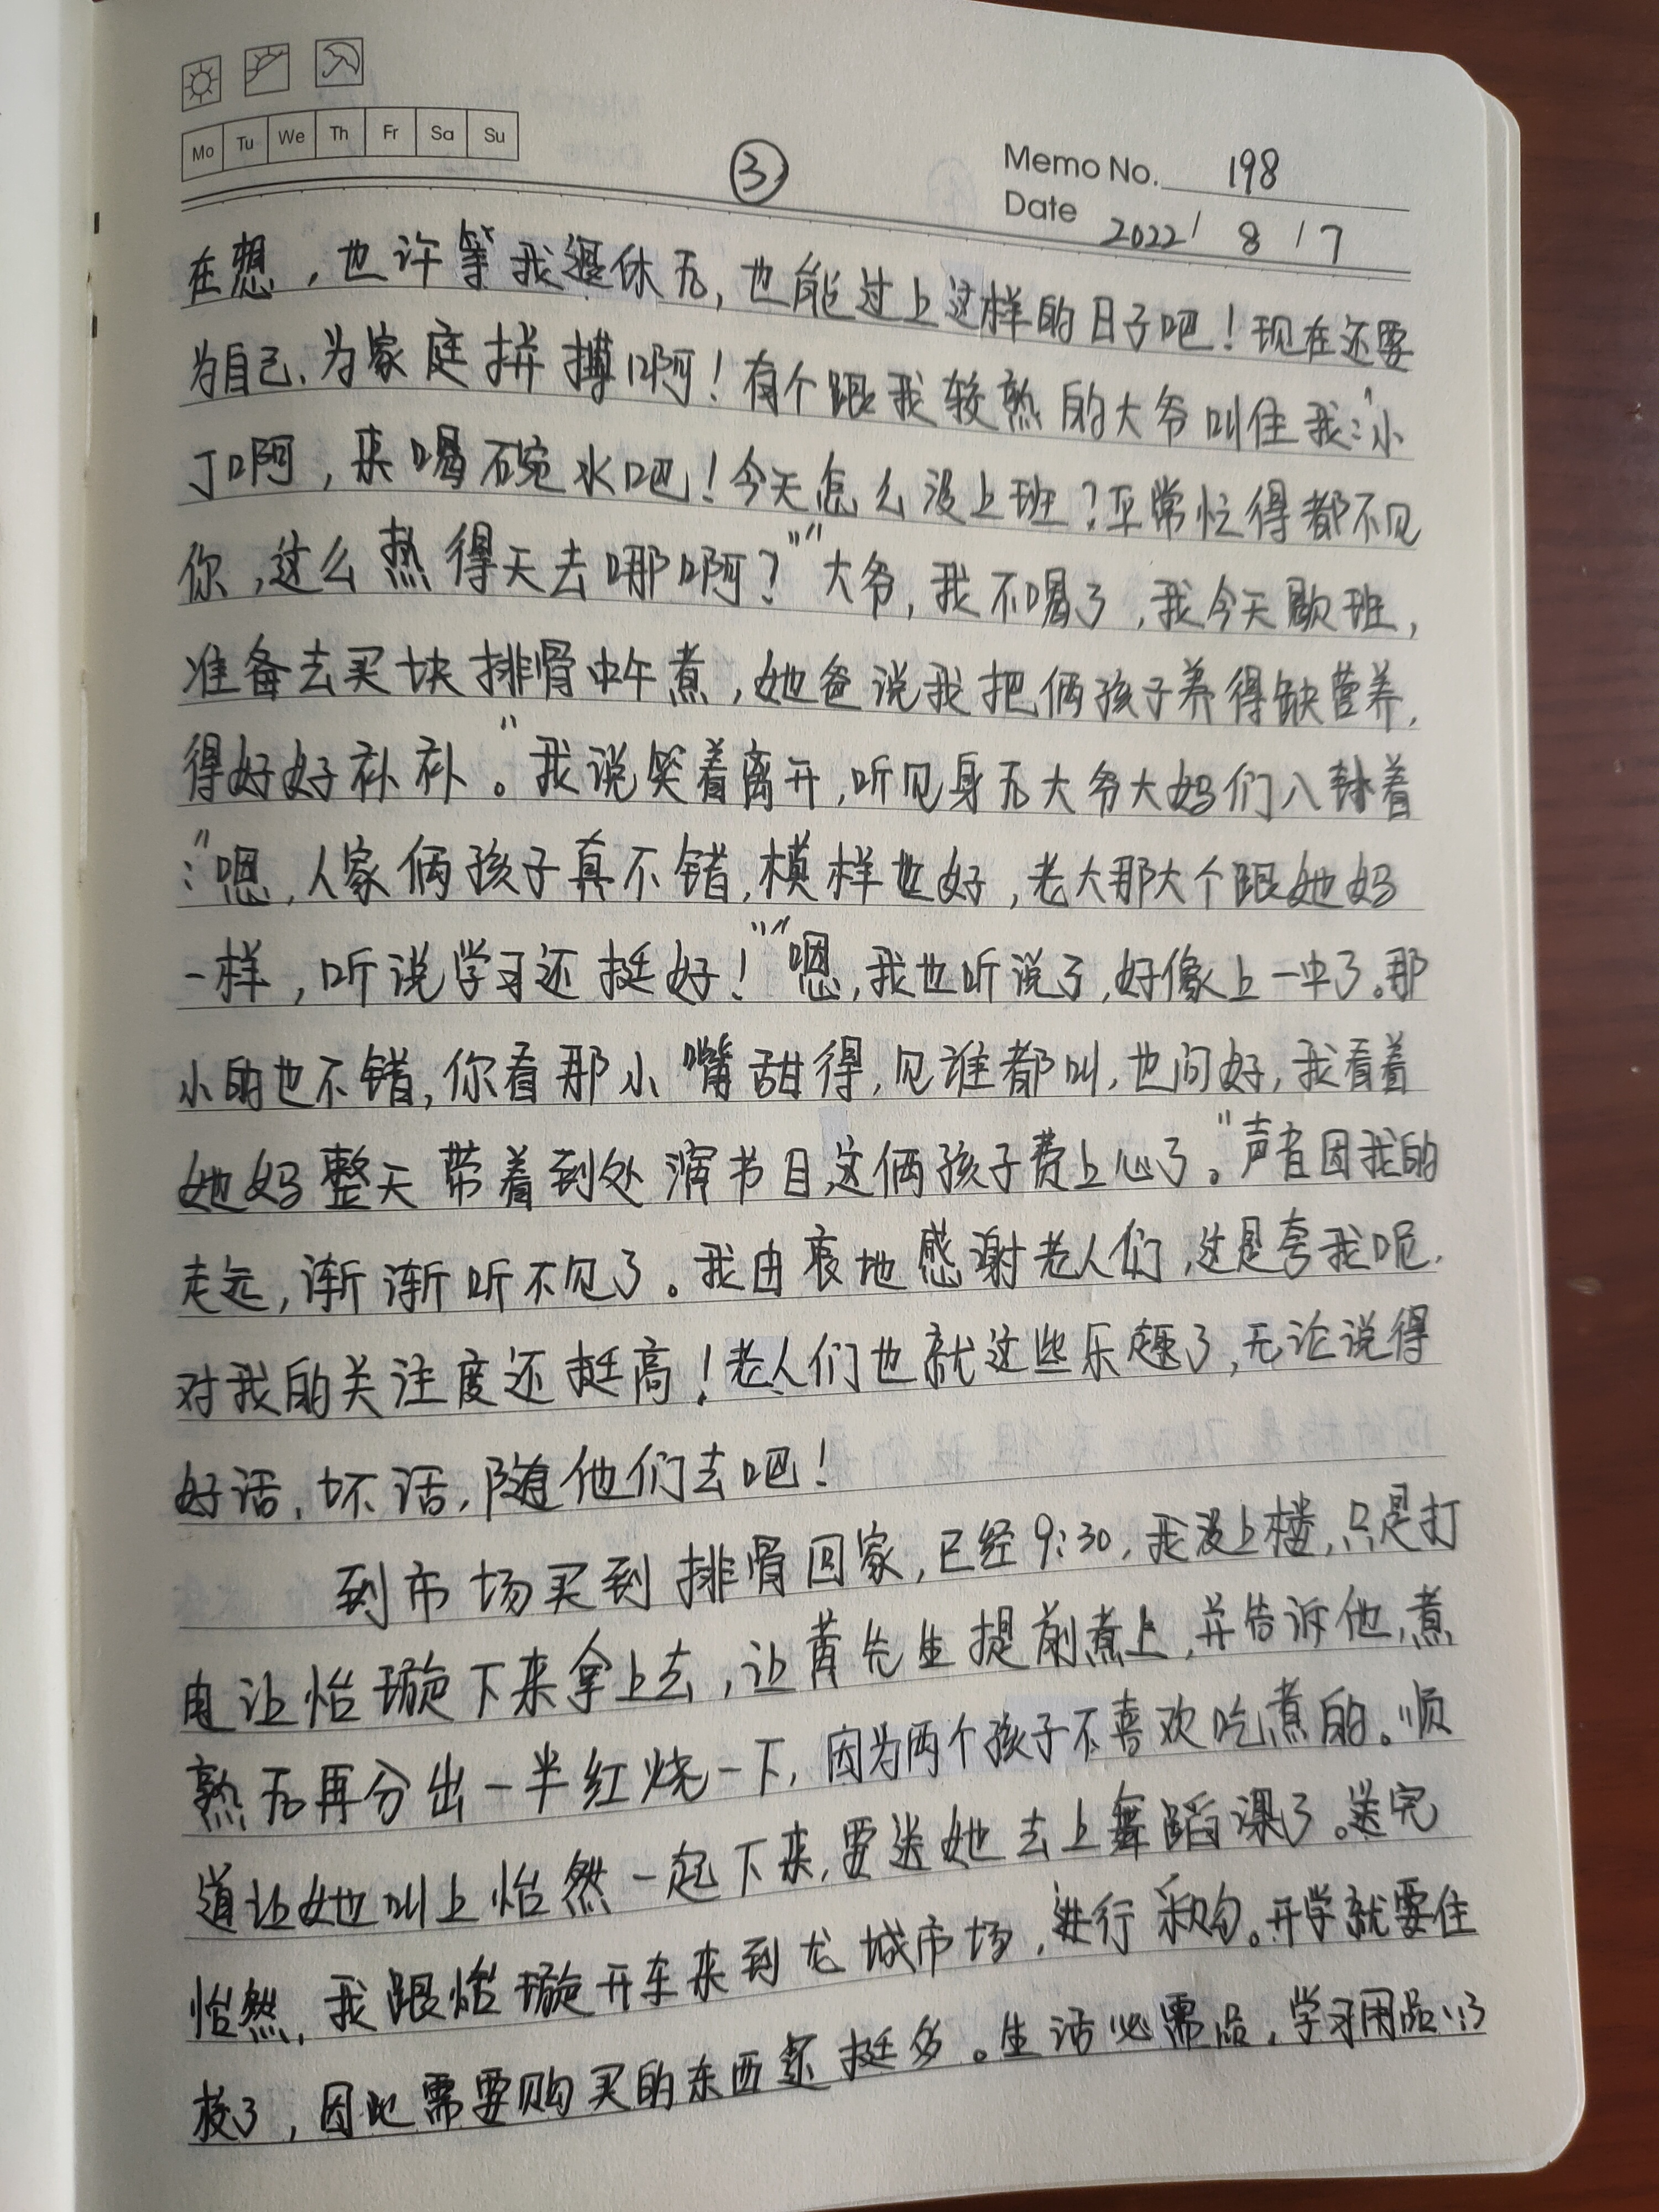 Mo Tu We Th Fr Sa Su
③
Memo No. 198
Date 2022 / 8 / 7
在想，也许等我退休后，也能过上这样的日子吧！现在还要
为自己、为家庭拼搏啊！有个跟我较熟的大爷叫住我：“小
丁啊，来喝碗水吧！今天怎么没上班？平常忙得都不见
你，这么热得天去哪啊？”“大爷，我不喝了，我今天歇班，
准备去买块排骨中午煮，她爸说我把俩孩子养得缺营养，
得好好补补。”我说笑着离开，听见身后大爷大妈们八卦着
：“嗯，人家俩孩子真不错，模样也好，老大那大个跟她妈
一样，听说学习还挺好！”“嗯，我也听说了，好像上一中了。那
小的也不错，你看那小嘴甜得，见谁都叫，也问好，我看着
她妈整天带着到处演节目，这俩孩子费上心了。”声音因我的
走远，渐渐听不见了。我由衷地感谢老人们，这是夸我呢，
对我的关注度还挺高！老人们也就这些乐趣了，无论说得
好话，坏话，随他们去吧！
到市场买到排骨回家，已经9:30，我没上楼，只是打
电让怡璇下来拿上去，让黄先生提前煮上，并告诉他，煮
熟后再分出一半红烧一下，因为两个孩子不喜欢吃煮的。顺
道让她叫上怡然一起下来，要送她去上舞蹈课了。送完
怡然，我跟怡璇开车来到龙城市场，进行采购。开学就要住
校了，因此需要购买的东西还挺多。生活必需品，学习用品